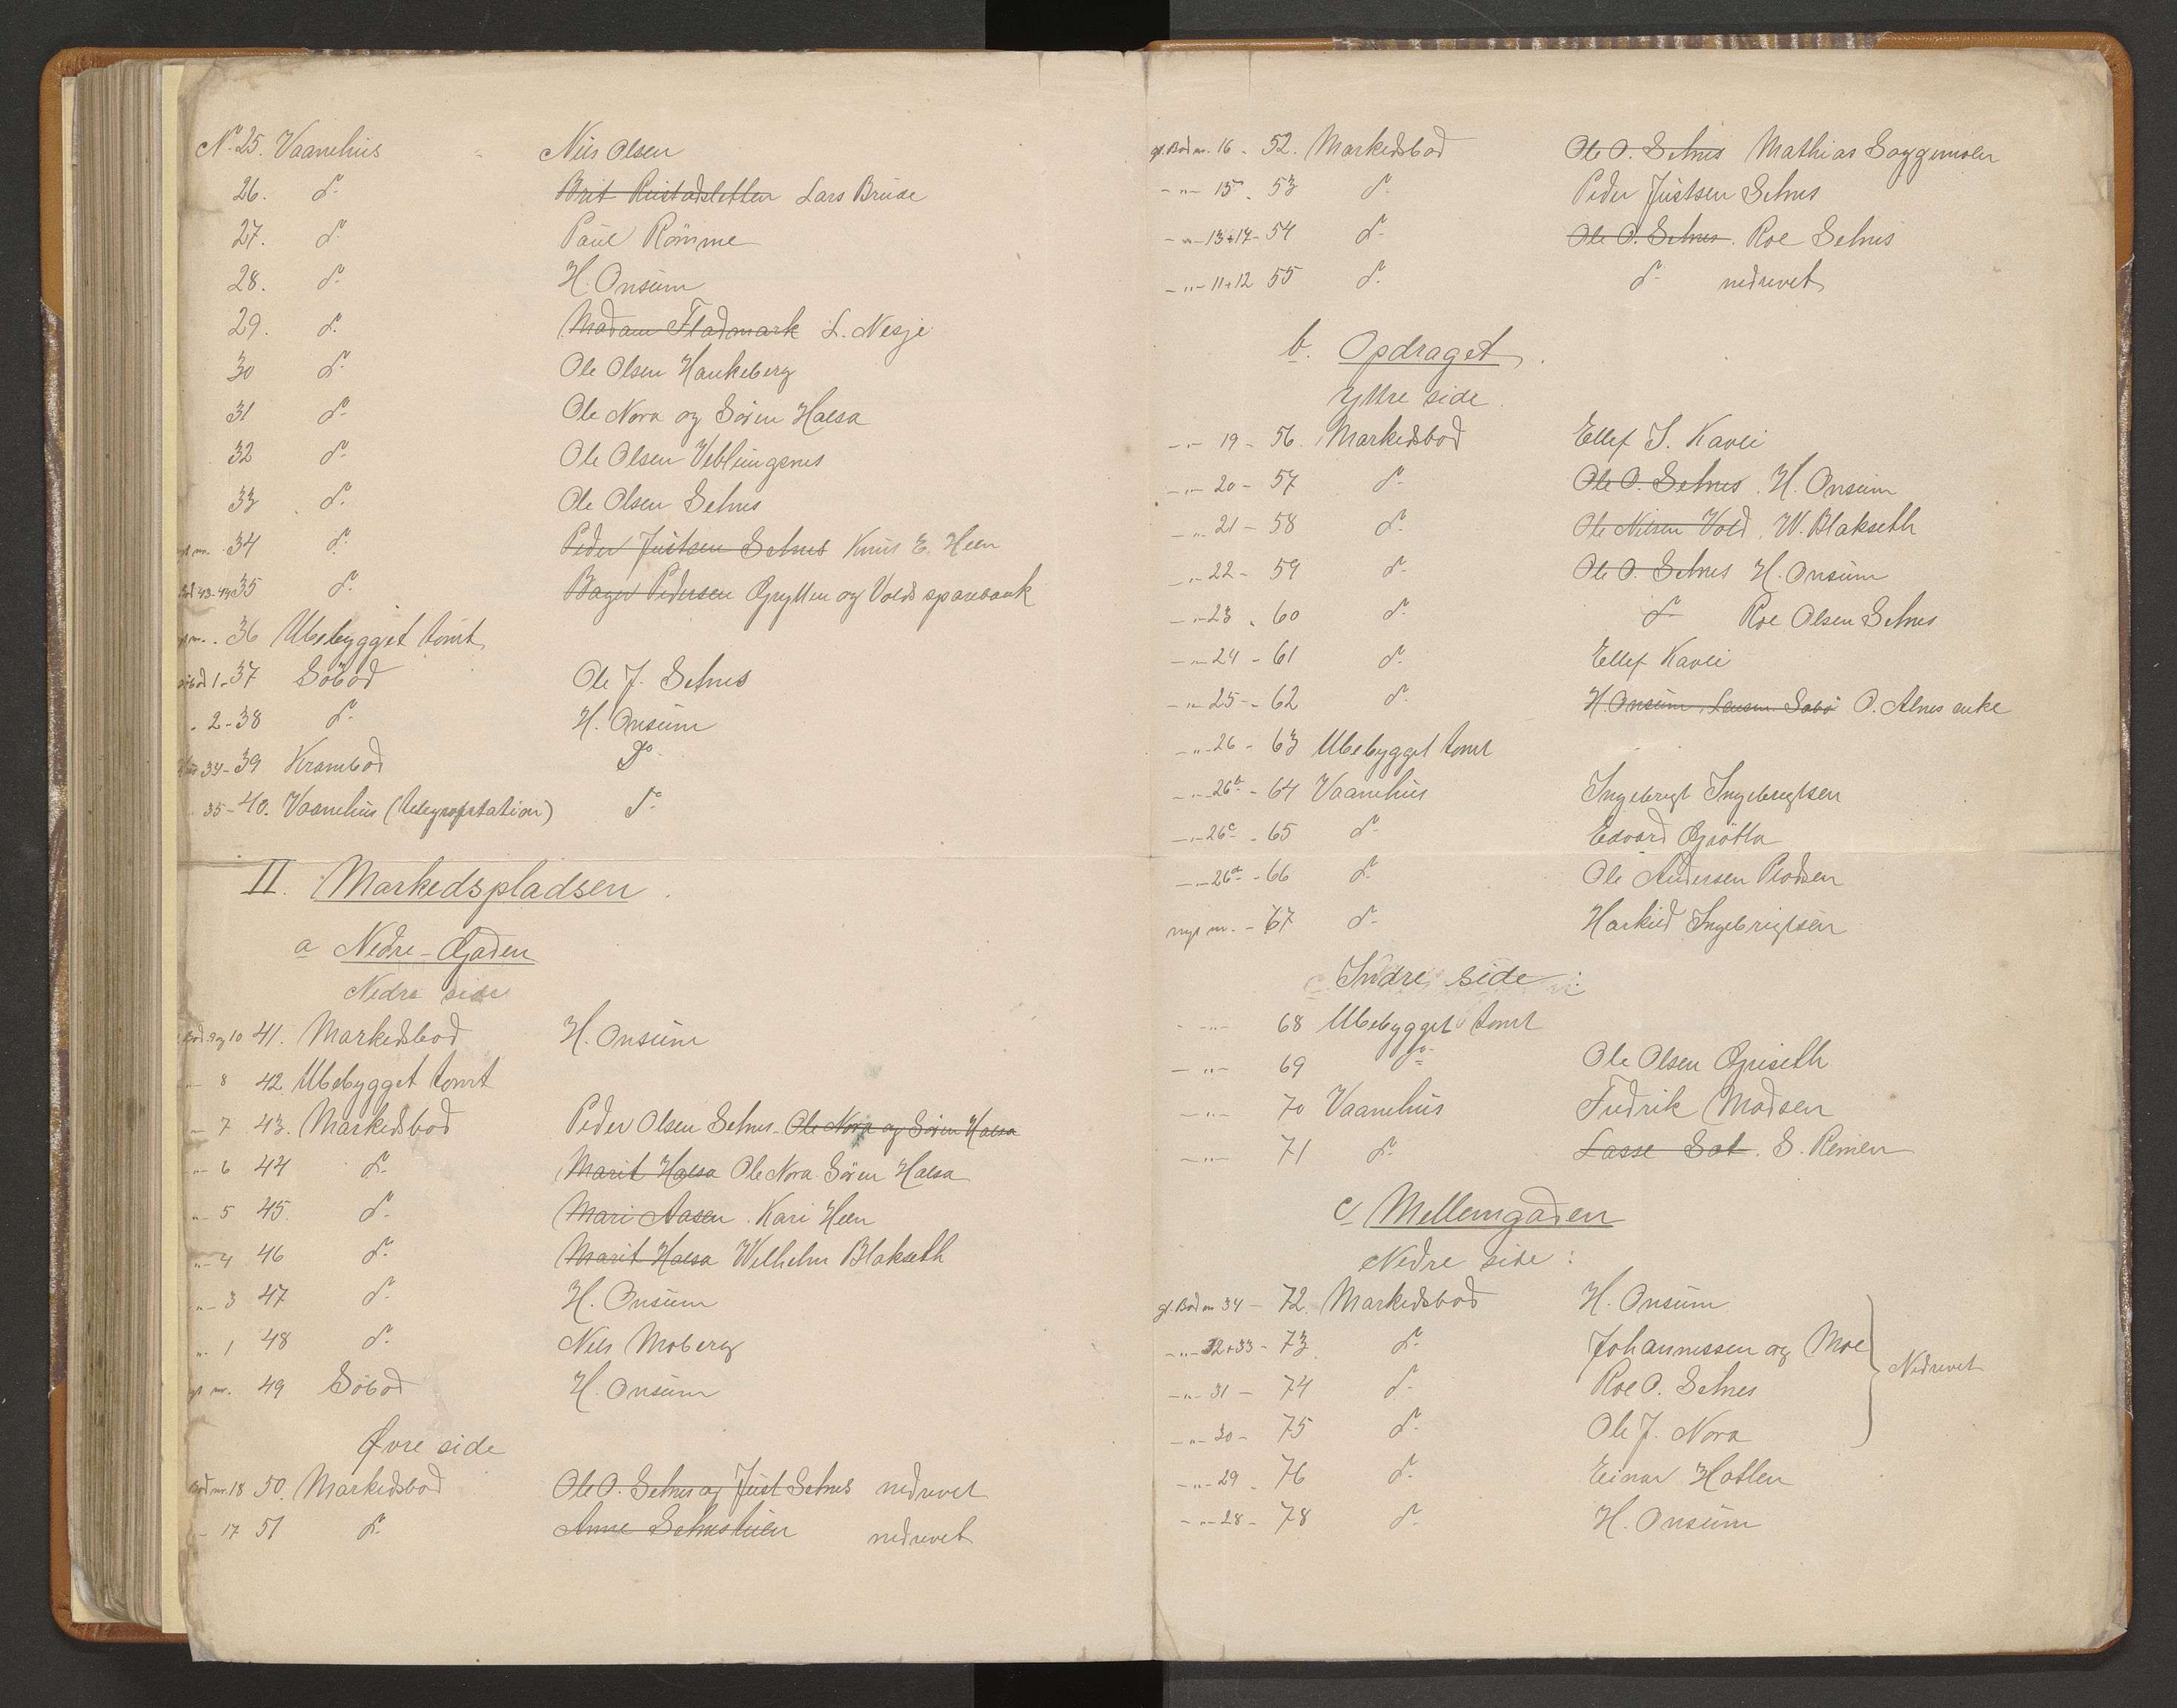 No 25. Vaanehus Nils Olsen
26. do Brit Rustadsletten Lars Bruse
27. do Paul Römme
28. do H. Onsum
29. do Madam Fladmark L. Nesje
30 do Ole Olsen Haukeberg
31 do Ole Nora og Sören Halsa
32 do Ole Olsen Veblungsnes
33 do Ole Olsen Setnes
nyt nr. 34 do Peder Justsen Setnes Knut E. Heen
Bod 43-44 35 do Bager Pedersen Grytten og Volds sparebank
nyt nr. 36 Ubebygget tomt
Söbod 1-37 Söbod Ole J. Setnes
2-38 do H. Onsum
34-39 Krambod do
35-40. Vaanehus (Telegrafstation) do
II. Markedspladsen.
a Nedre-Gaden
Nedre side
Bod. 9 og 10 41. Markedsbod H. Onsum
-"- 8 42. Ubebygget tomt
- 7 43. Markedsbod Peder Olsen Setnes. Ole Nora og Sören Halsa
"- 6 44 do Marit Halsa Ole Nora. Sören Halsa
"- 5 45. do Mari Aasen. Kari Heen
"- 4 46 do Marit Halsa Wilhelm Blakseth
"- 3 47 do H. Onsum
". 1 48 do Nils Moberg
nyt nr. 49 Söbod H. Onsum
Øvre side
Bod nr. 18 50. Markedsbod Ole O. Setnes og Just Setnes nedrevet
- 17 51 do Anne Setnes nedrevet
gl. Bod nr. 16 - 52. Markedsbod Ole O. Setnes Mathias Soggemoen
-"- 15 - 53 do Peder Justsen Setnes
-"- 13+14 - 54 do Ole O. Setnes. Roe Setnes
-"- 11+12 55 do do nedrevet
b. Opdraget.
Yttre side.
-"- 19 - 56. Markedsbod Ellef S. Kavli
-"- 20 - 57 do Ole O. Setnes. H. Onsum
-"- 21 - 58 do Ole Nilsen Vold. W. Blakseth
-"- 22 - 59 do Ole O. Setnes H. Onsum
-"- 23 - 60 do do Roe Olsen Setnes
-"- 24 - 61 do Ellef Kavli
-"- 25 - 62 do H. Onsum. Lensm. Sabö O. Alnes enke
-"- 26 - 63 Ubebygget tomt
-"- 26b - 64 Vaanehus Ingebrigt Ingebrigtsen
-"- 26c - 65 do Edvard Gjötla
-"- 26a - 66 do Ole Andersen Pladsen
nyt nr. - 67 do Harkild Ingebrigtsen
Indre side:
-"- 68 Ubebygget tomt
-"- 69 do Ole Olsen Griseth
-"- 70 Vaanehus Fredrik Madsen
-"- 71 do Lasse Sat. S. Remen
c/ Mellemgaden
Nedre side:
gl. Bod nr 34 - 72. Markedsbod H. Onsum
-"- 32+33 - 73 do Johannessen og Moe
Nedrevet
-"- 31 - 74 do Roe O. Setnes
-"- 30 - 75 do Ole J. Nora
-"- 29 - 76 do Einar Hatlen
-"- 28 - 78 do H. Onsum